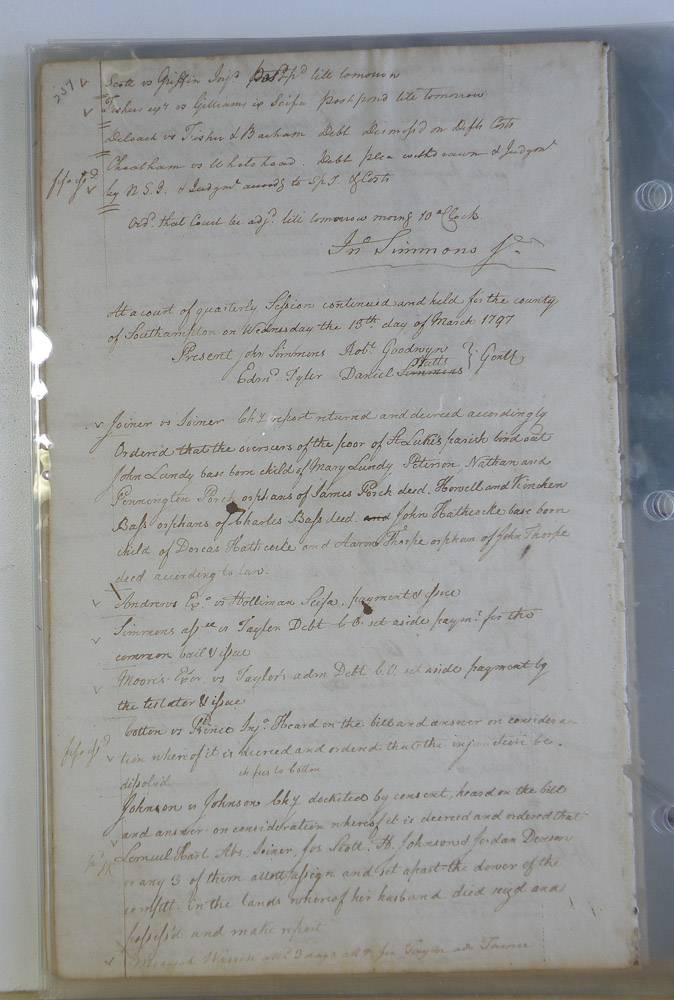 237
Scott vs Griffin Injo postpd till tomorrow
Fishers exr vs Gilliams ex Scifa postpond till tomorrow
Deloach vs Fisher & Barham Debt Dismissd on Defts Costs
Cheatham vs Whitehead. Debt plea withdrawn & Judgmt
fifa issd
by N.S.I. & Judgmt accordg to Spt. & Costs
Ordd that Court be adjd till tomorrow morng 10 oClock
Jno Simmons
At a court of quarterly Session continued and held for the county
of Southampton on Wednesday the 15th day of March 1797
Present John Simmons Robt Goodwyn
Edmd Tyler Daniel Simmons Butts } Gentn
Joiner vs Joiner Chy report returned and decreed accordingly
Ordered that the overseers of the poor of St Luke's parish bind out
John Lundy base born child of Mary Lundy Peterson, Nathan and
Pennington Porch orphans of James Porch decd. Howell and Kinchen
Bass orphans of Charles Bass decd. and John Hathcocke base born
child of Dorcas Hathcocke and Aaron Thorpe orphan of John Thorpe
decd according to law.
Andrews Exo vs Holliman Scifa, payment & issue
Simmons assee vs Taylor Debt C.O. set aside paymt for the
common bail & issue
Moore's Exor vs Taylor's adm Debt C.O set aside payment by
the testator & issue
Cotton vs Prince Injo Heard on the bill and answer on considera
fifa issd
tion whereof it is decreed and ordered that the injunction be
dissolvd
Johnson vs Johnson Chy docketed by consent, heard on the bill
and answer on consideration whereof it is decreed and ordered that
Lemuel Hart Abs. Joiner, Jos Scott, H. Johnson & Jordan Denson
or any 3 of them allott assign and set apart the dower of the
complt. in the lands whereof her husband died seizd and
possess'd and make report
3 days